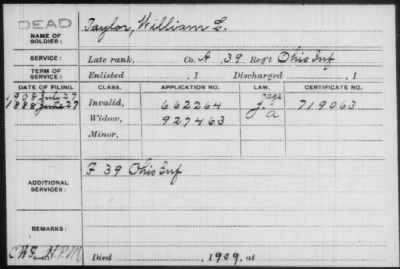 DEAD
NAME OF SOLDIER: Taylor, William L.
SERVICE: Late rank, Co. A, 39 Reg't Ohio Inf
TERM OF SERVICE: Enlisted , 1 Discharged , 1
DATE OF FILING. CLASS. APPLICATION NO. LAW. CERTIFICATE NO.
1888 June 27 Invalid, 662264 719063
1908 July 27 Widow, 927463
Minor,
ADDITIONAL SERVICES: F 39 Ohio Inf
REMARKS:
Died , 1909, at